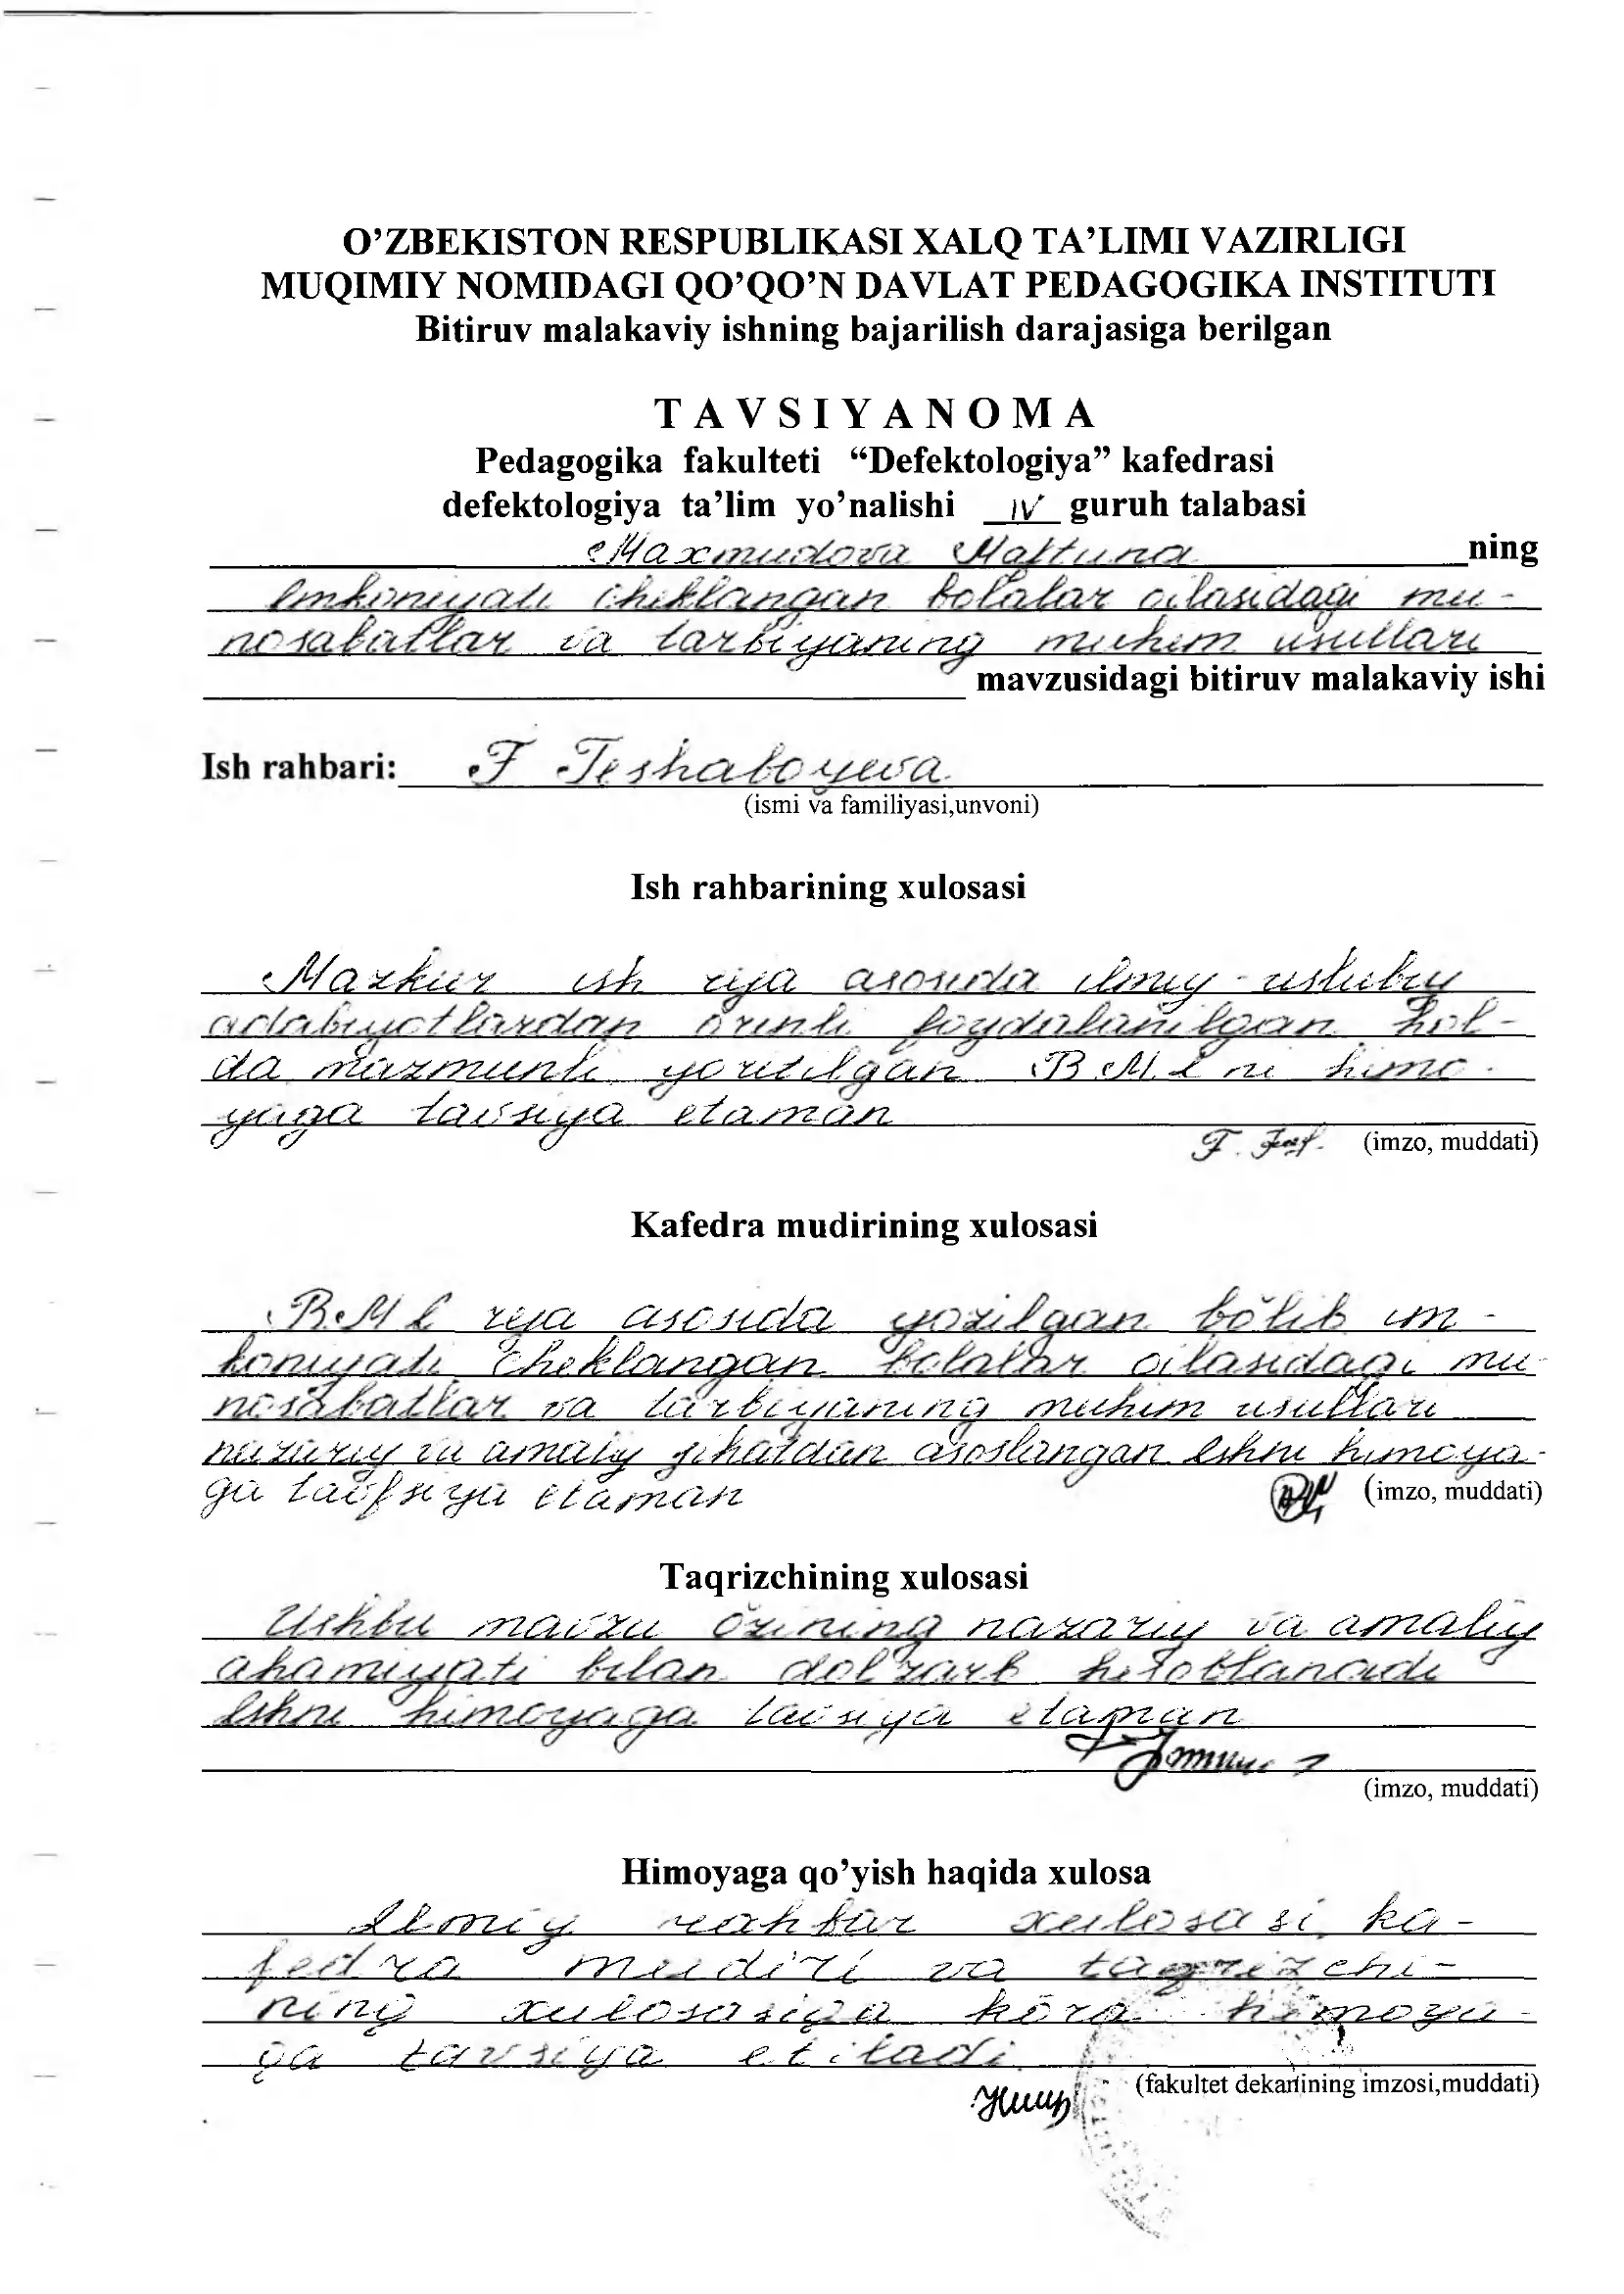 O’ZBEKISTON RESPUBLIKASI XALQ TA’LIMI VAZIRLIGI
MUQIMIY NOMIDAGI QO’QO’N DAVLAT PEDAGOGIKA INSTITUTI
Bitiruv malakaviy ishning bajarilish darajasiga berilgan
T A V S I Y A N O M A
Pedagogika fakulteti “Defektologiya” kafedrasi
defektologiya ta’lim yo’nalishi IV guruh talabasi
Maxmudova Maftuna ning
Imkoniyati cheklangan bolalar oilasidagi mu-
nosabatlar va tarbiyaning muhim usullari
mavzusidagi bitiruv malakaviy ishi
Ish rahbari: F Teshaboyeva
(ismi va familiyasi,unvoni)
Ish rahbarining xulosasi
Mazkur ish reja asosida ilmiy-uslubiy
adabiyotlardan òrinli foydalanilgan hol-
da mazmunli yoritilgan B M I ni himo-
yaga tavsiya etaman
(imzo, muddati)
Kafedra mudirining xulosasi
B M I reja asosida yozilgan bŏlib im-
koniyati cheklangan bolalar oilasidagi mu-
nosabatlar va tarbiyaning muhim usullari
nazariy va amaliy jihatdan asoslangan Ishni himoya-
ga tavfsiya etaman
(imzo, muddati)
Taqrizchining xulosasi
Ushbu mavzu ŏzining nazariy va amaliy
ahamiyati bilan dol'zarb hisoblanadi
Ishni himoyaga tavsiya etaman
(imzo, muddati)
Himoyaga qo’yish haqida xulosa
Ilmiy rahbar xulosasi, ka-
fedra mudiri va taqrizchi-
ning xulosasiga kŏra himoya-
ga tavsiya etiladi
(fakultet dekanining imzosi,muddati)